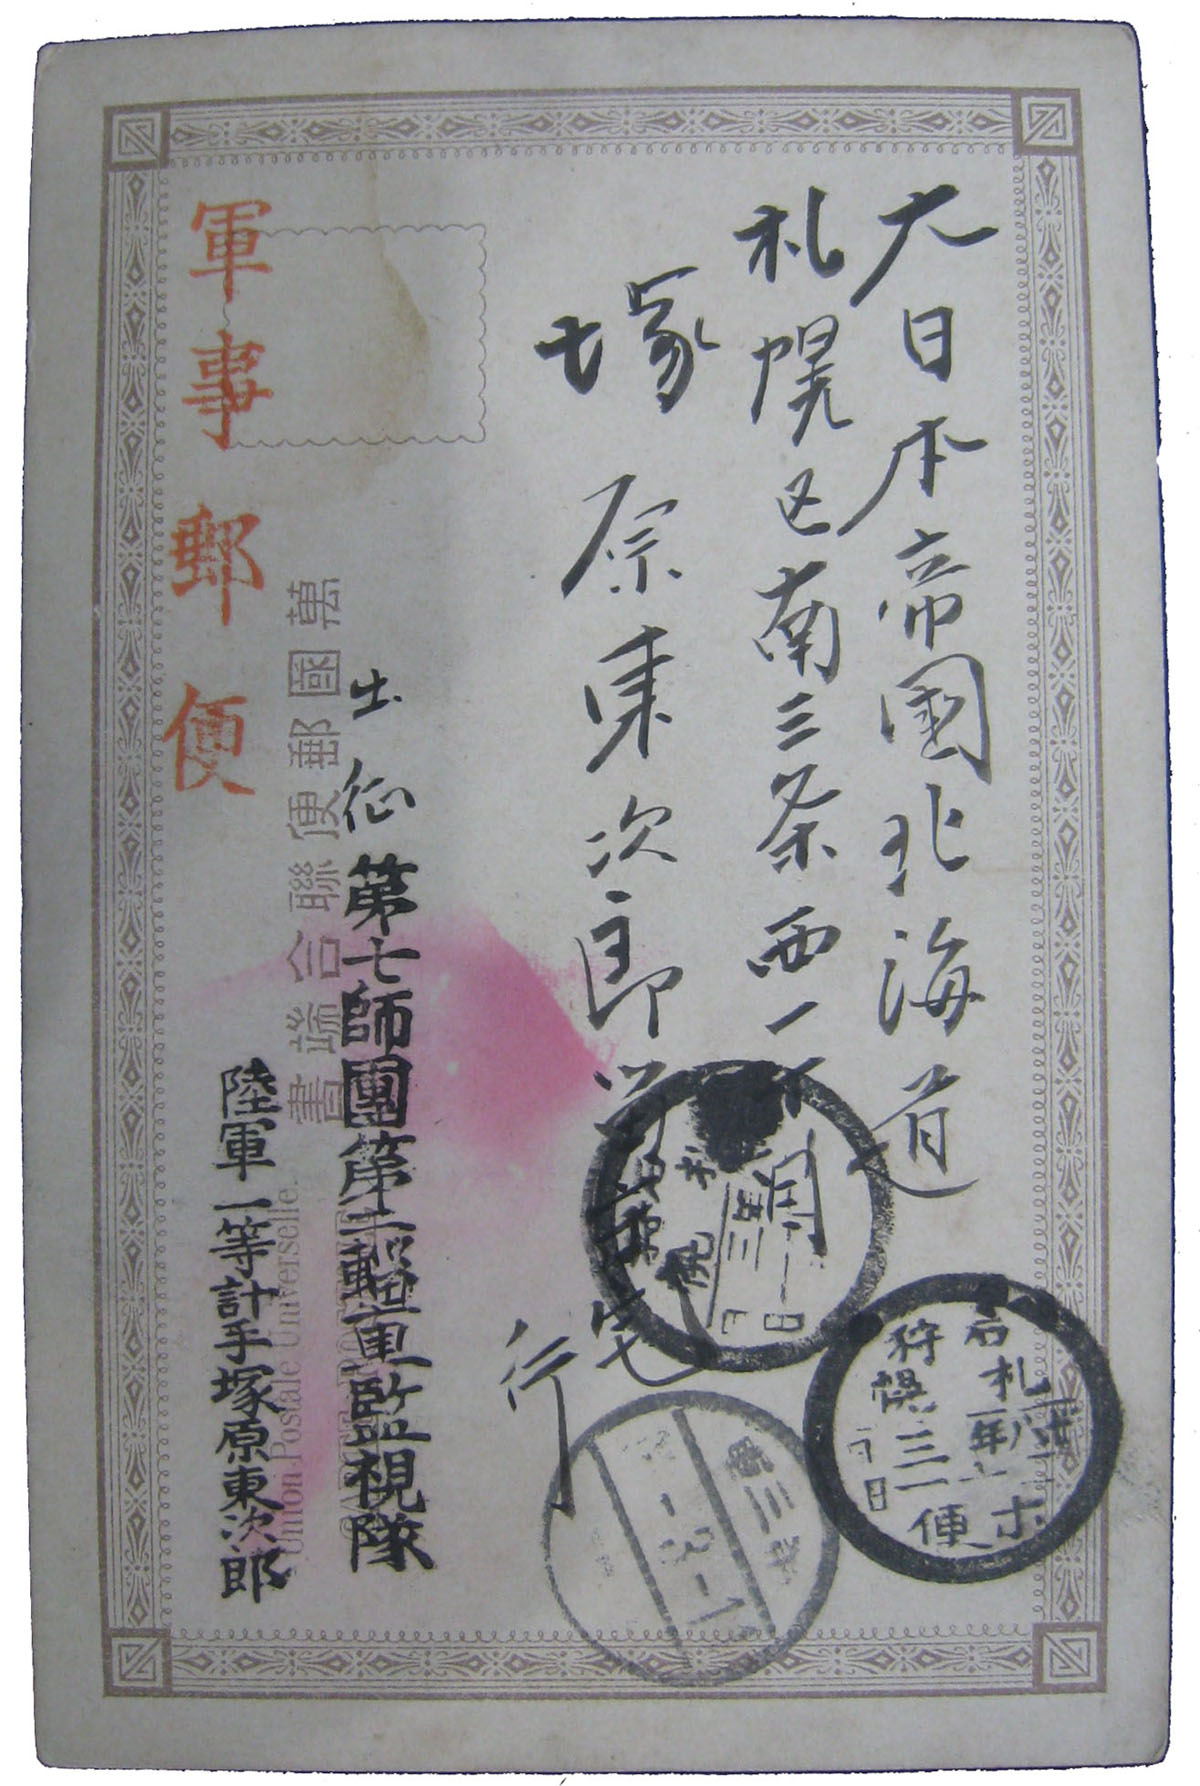 大日本帝國北海道
札幌区南三条西一丁
塚原東次郎
宅
行
出征第七師團第二輜重監視隊
陸軍一等計手塚原東次郎
萬國郵便聯合端書
Union Postale Universelle.
軍事郵便
札幌
石狩
札幌
便